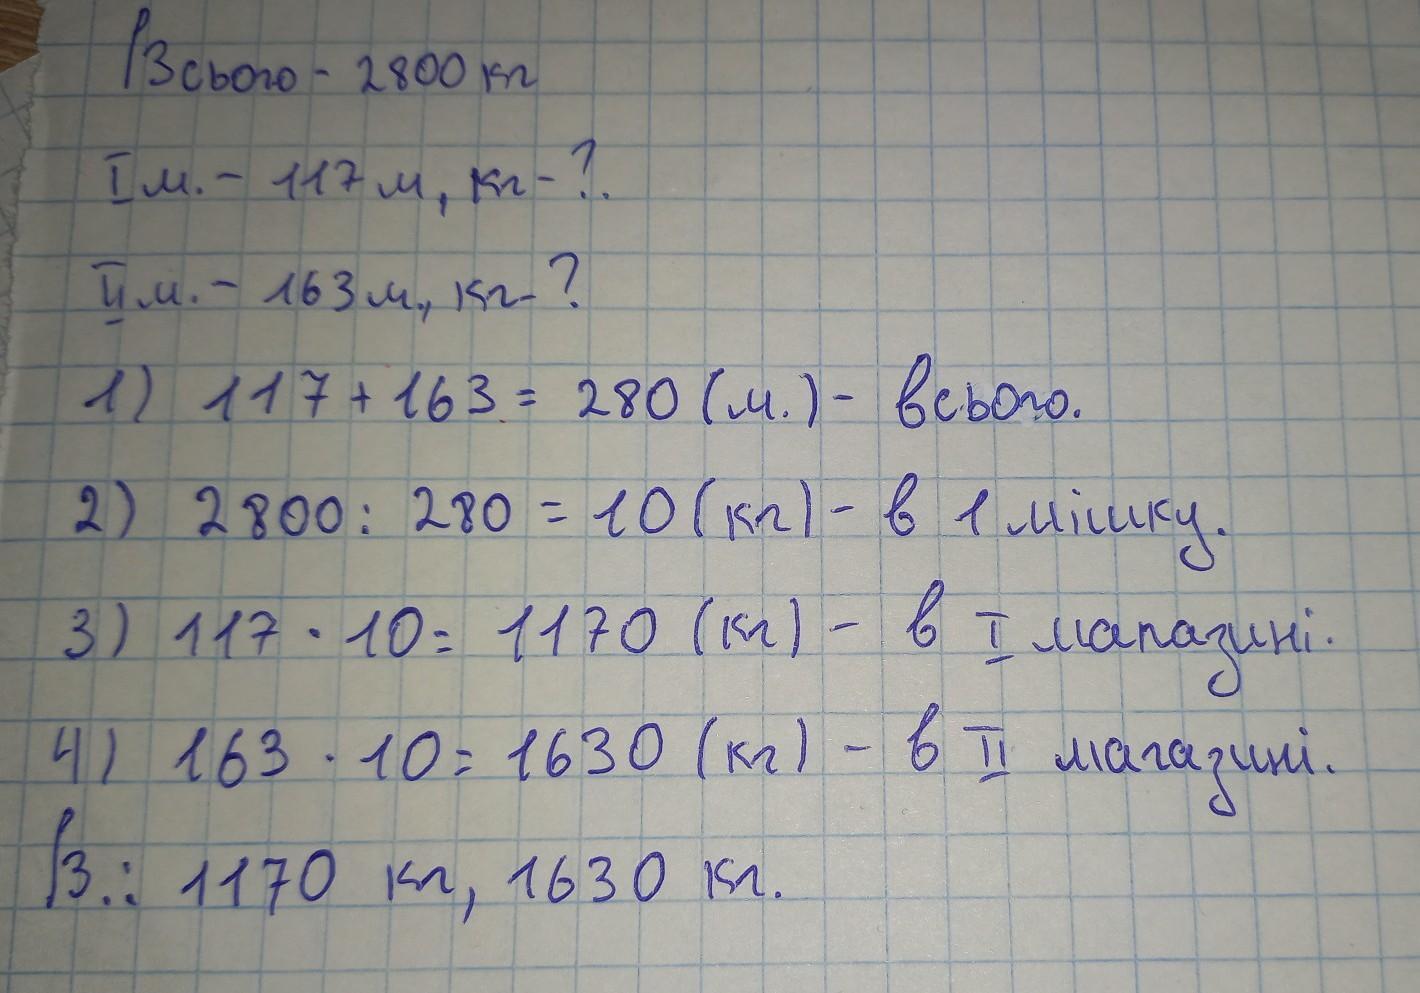 Всього - 2800 кг
I м. - 117 м, кг - ?.
II м. - 163 м., кг - ?
1) 117 + 163 = 280 (м.) - всього.
2) 2800 : 280 = 10 (кг) - в 1 мішку.
3) 117 · 10 = 1170 (кг) - в I магазині.
4) 163 · 10 = 1630 (кг) - в II магазині.
В.: 1170 кг, 1630 кг.